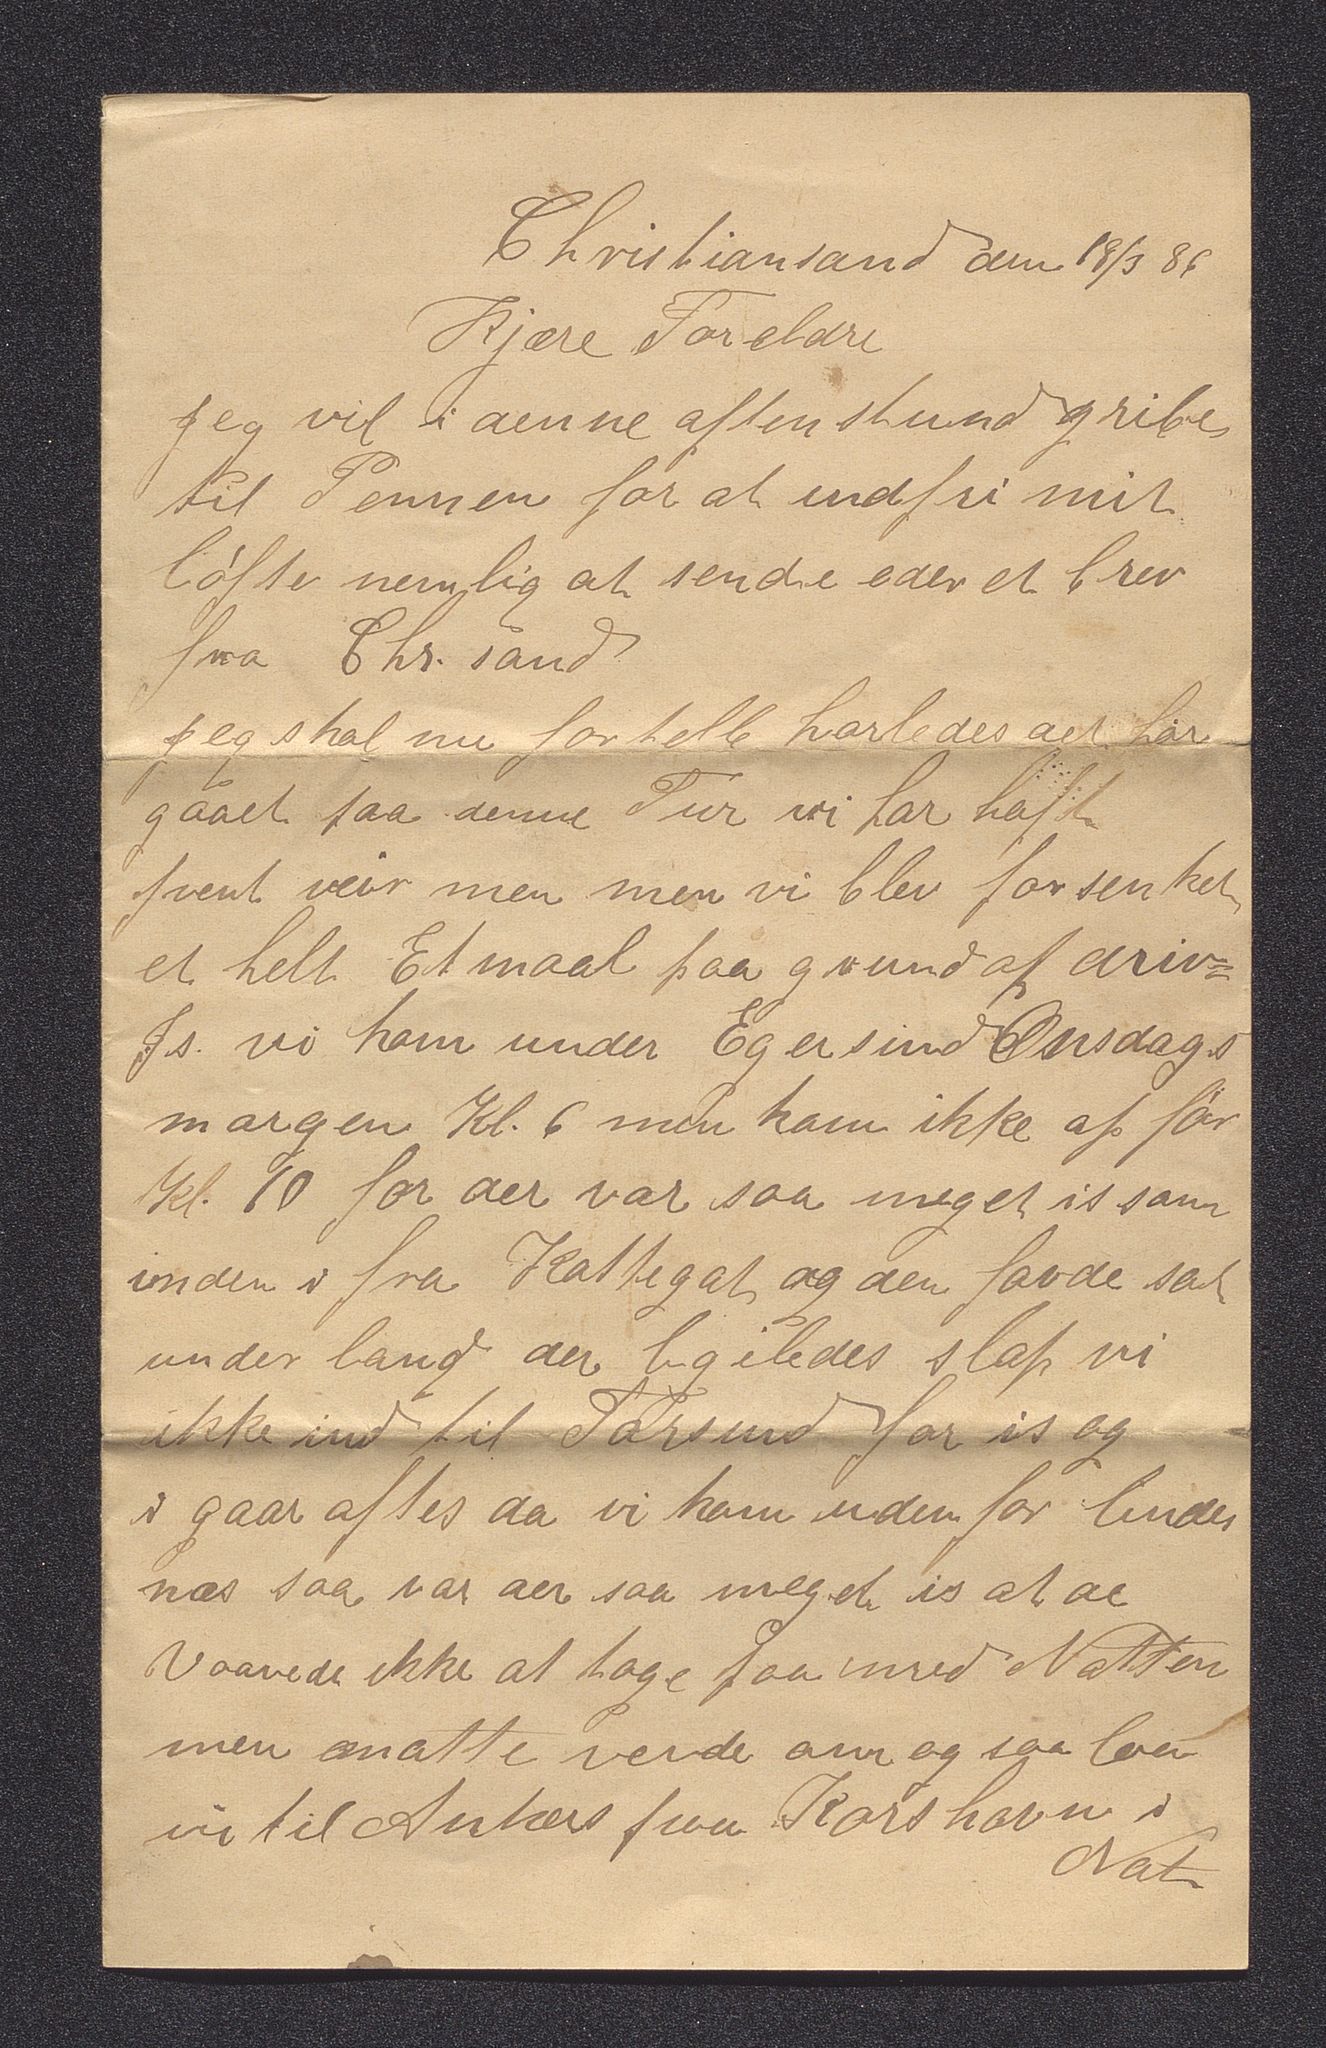 Christiansand den 18/3 86
Kjære Foreldre
jeg vil i denne aftenstund gribe
til Pennen for at indfri mit
löfte nemlig at sende eder et brev
fra Chr. sand
jeg skal nu fortelle horledes det har
gåaet paa denne Tur vi har haft
pent veir men men vi blev forsenket
et helt Etmaal paa grund af driv=
Is. vi kom under Egersund Onsdags
morgen Kl. 6 men kom ikke af för
Kl. 10 for der var saa meget is som
inden i fra Kattegat og den favde sat
under land der ligeledes slap vi
ikke ind til Farsund for is og
i gaar aftes da vi kom uden for lindes
næs saa var der saa meget is at de
Vaavede ikke at tage paa med Natten
men matte vende om og saa laa
vi til Ankers paa Korshavn i
Nat